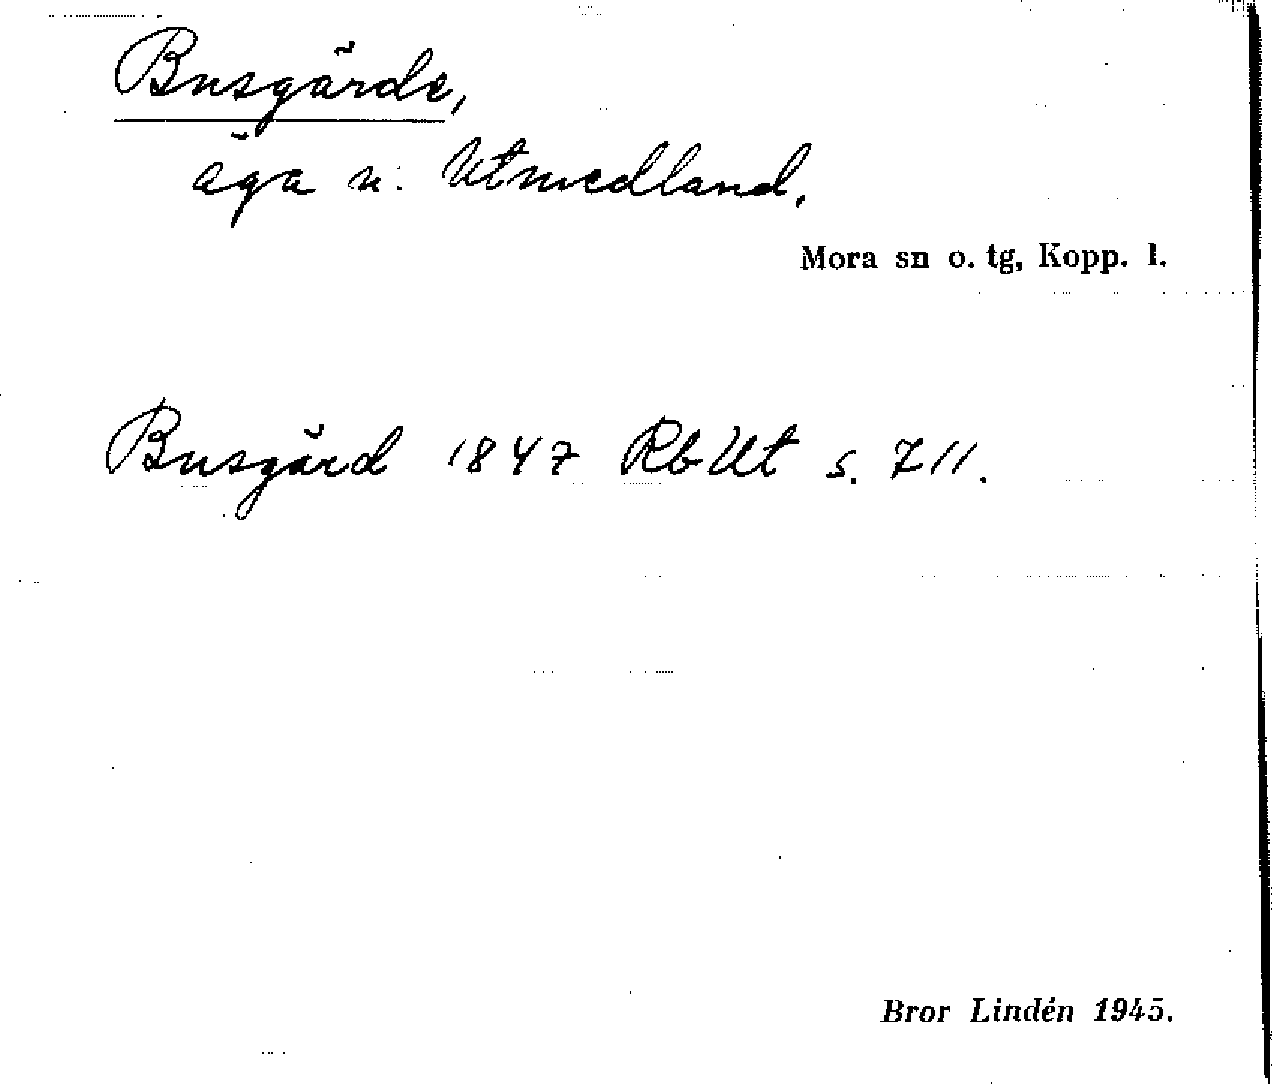 Busgärde,
äga n. Utmedland.
Mora sn o. tg, Kopp. l.
Busgärd 1847 RbUt s. 711.
Bror Lindén 1945.